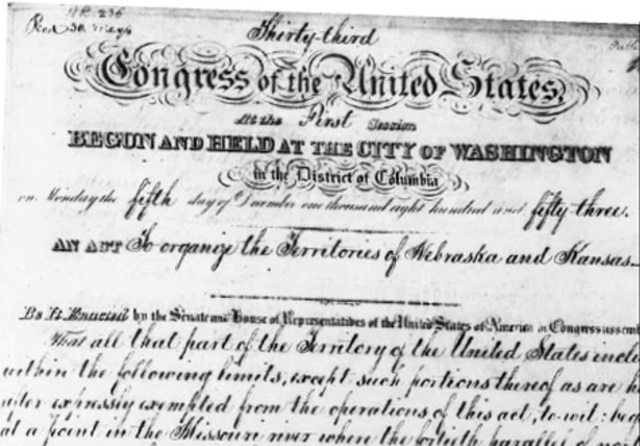 H.R. 236
Recd 30 May
Thirty-third
Congress of the United States,
At the First Session
BEGUN AND HELD AT THE CITY OF WASHINGTON
in the District of Columbia
on Monday the fifth day of December one thousand eight hundred and fifty-three.
AN ACT To organize the Territories of Nebraska and Kansas.
Be It Enacted by the Senate and House of Representatives of the United States of America in Congress assem
That all that part of the Territory of the United States inclu
within the following limits, except such portions thereof as are h
after expressly exempted from the operations of this act, to wit: beg
at a point in the Missouri river where the fortieth parallel of nor